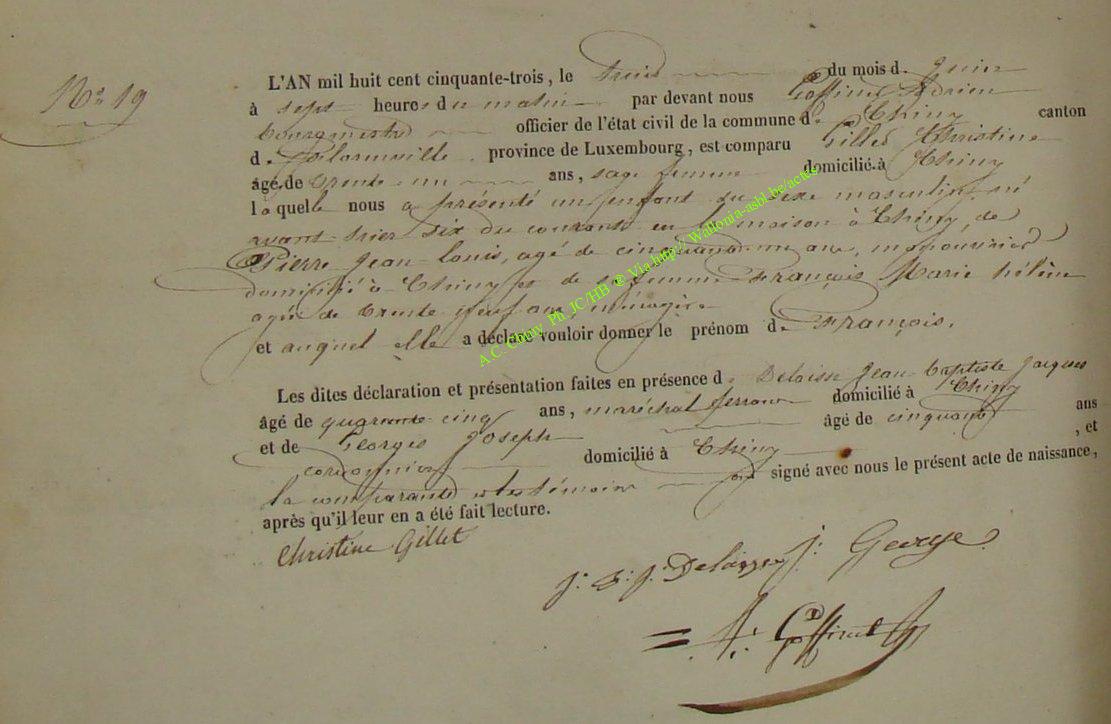 No 19
L'AN mil huit cent cinquante-trois, le du mois d. Juin
à sept heures du matin par devant nous Goffinet Adrien
bourgmestre officier de l'état civil de la commune d. Chiny canton
d. province de Luxembourg, est comparu Gillet Christine
âgé.de trente un ans, sage femme domicilié.à Chiny
laquelle nous a présenté un enfant du sexe masculin, né
avant hier six du courant en la maison à Chiny, de
Pierre Jean Louis, agé de cinquante un ans, manouvrier
domicilié à Chiny, et de sa femme François Marie hélène
agée de trente neuf ans ménagère
et auquel elle a déclaré vouloir donner le prénom d. François.
Les dites déclaration et présentation faites en présence d. Jean baptiste Jacques
âgé de quarante cinq ans, maréchal ferrant domicilié à Chiny
et de Georges Joseph âgé de cinquante ans
cordonnier domicilié à Chiny , et
la comparante et les témoins ont signé avec nous le présent acte de naissance,
après qu'il leur en a été fait lecture.
Christine Gillet
J. B. J. J. George
A. Goffinet
A.C. Chiny Ph. JC/HB @ Via http:// Wallonia-asbl.be/actes